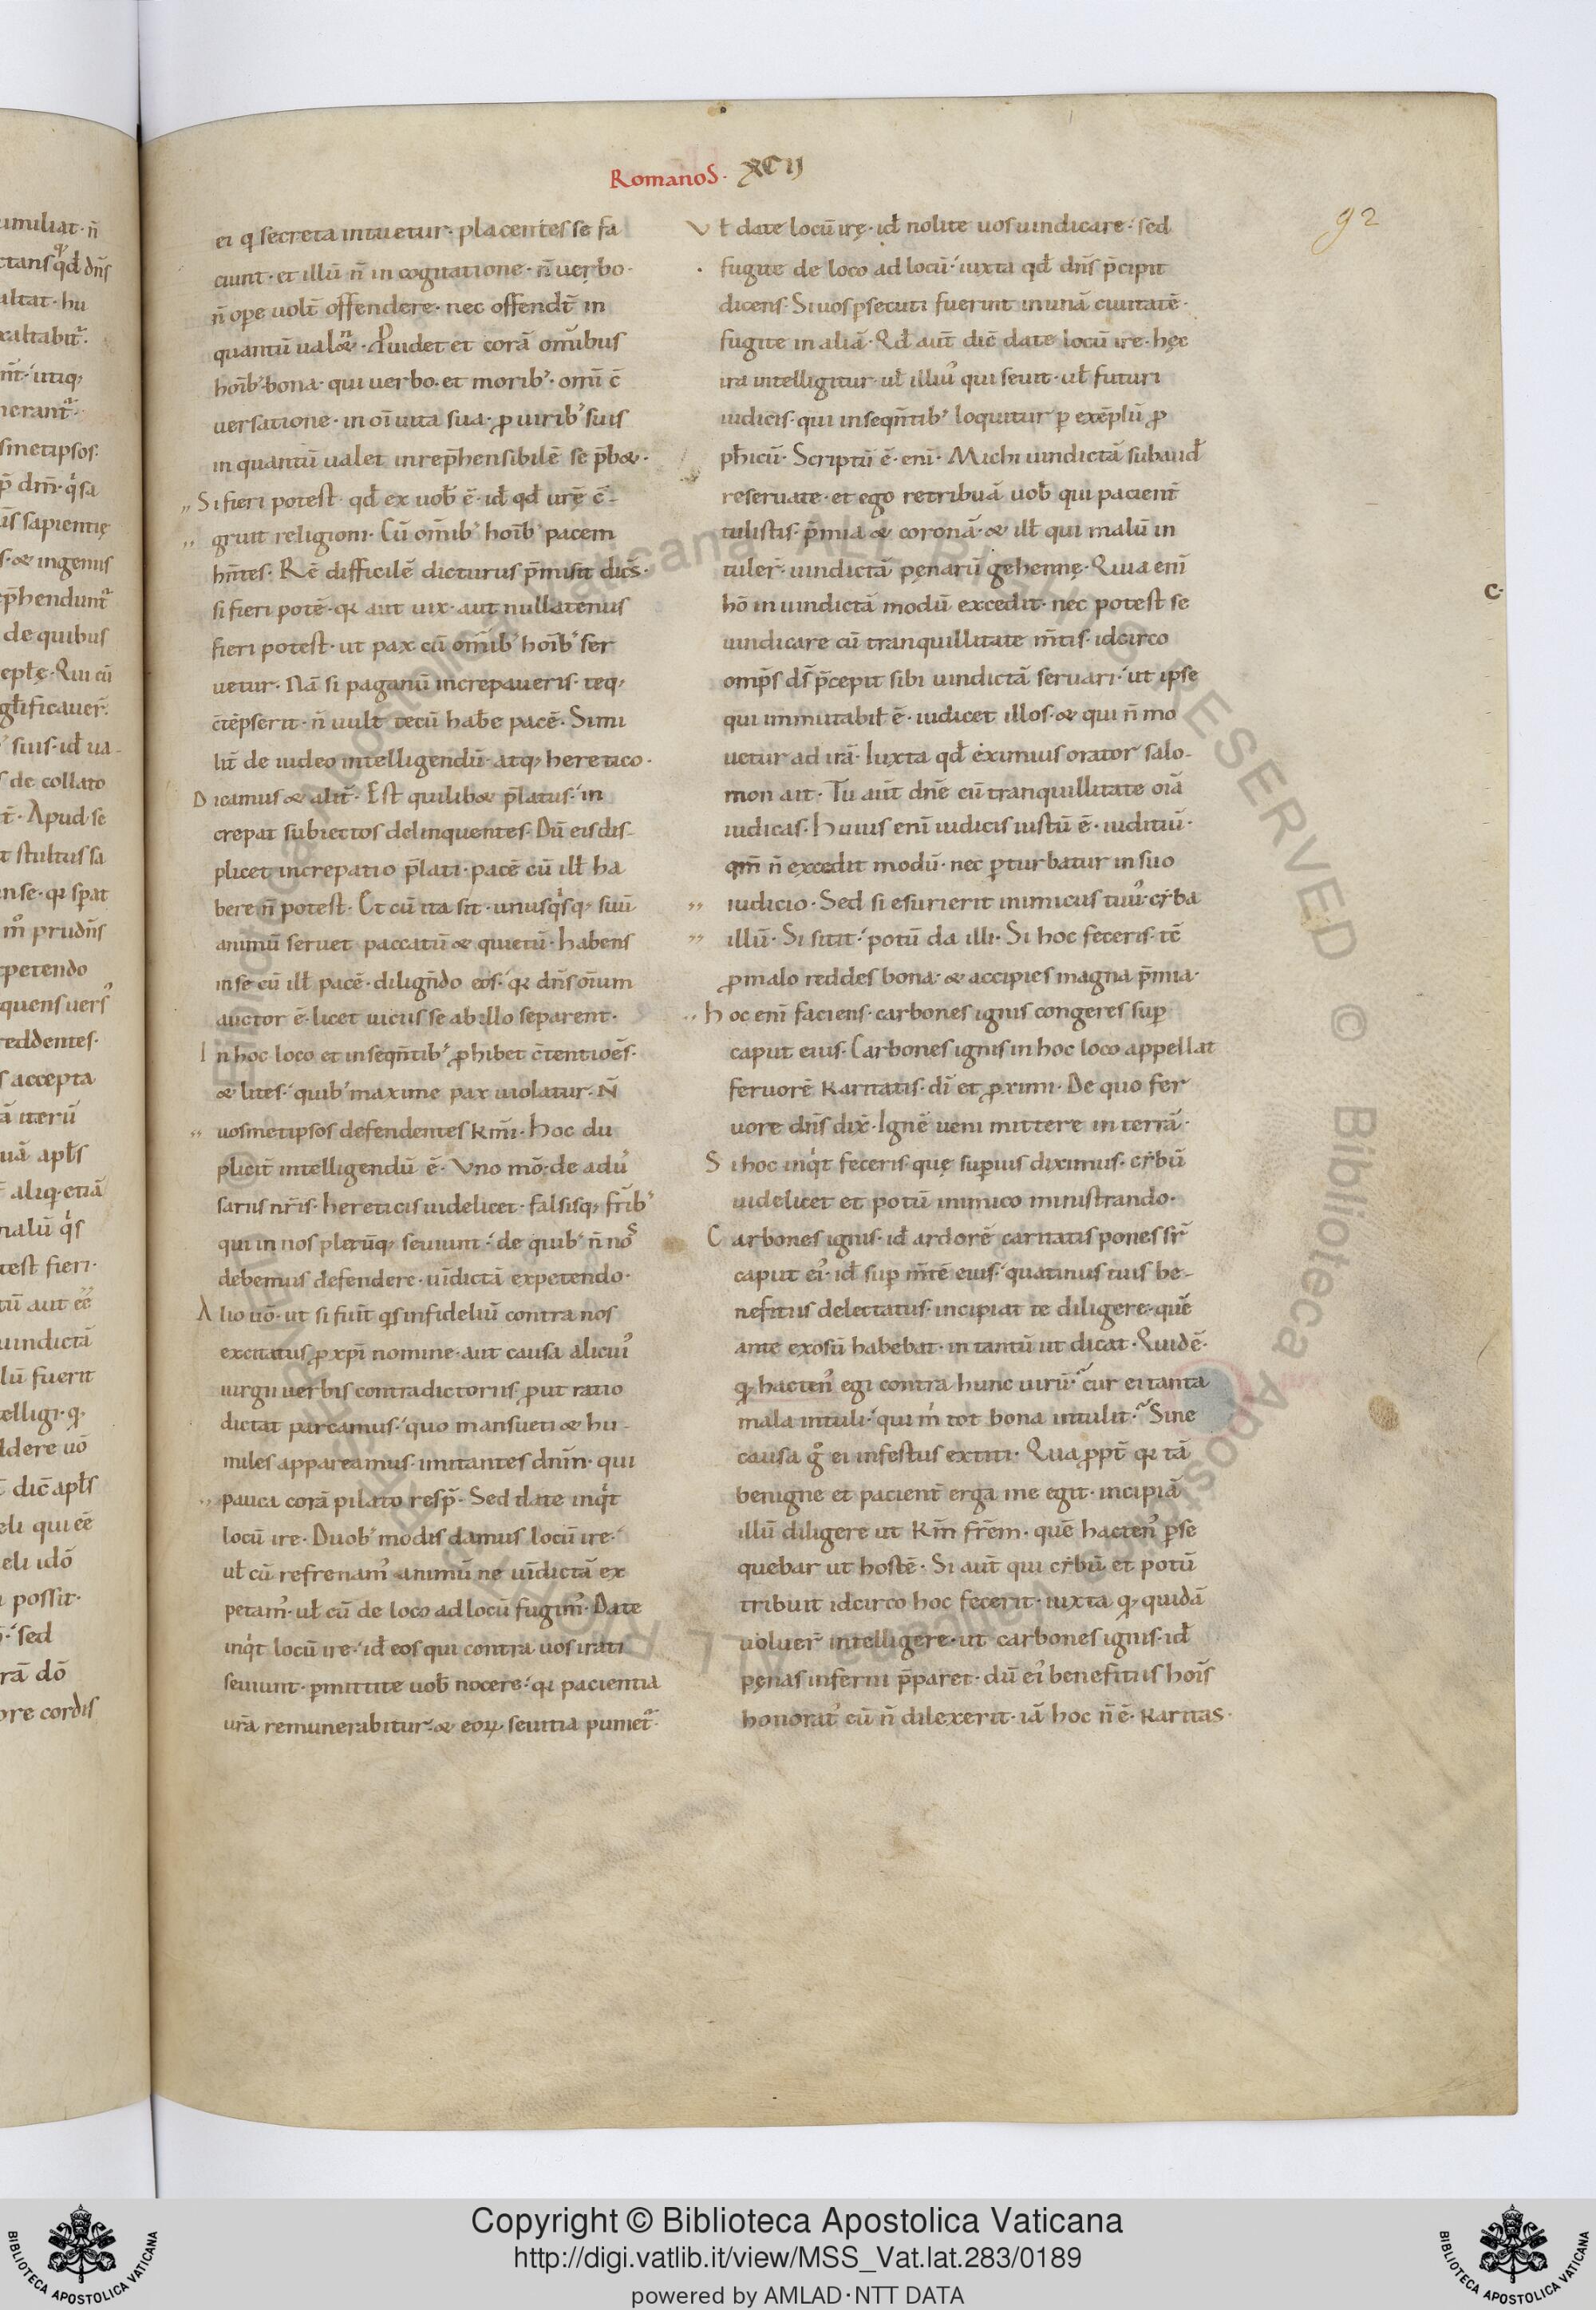 Romanos. XCII
92
ei q secreta intuetur. placentes se fa
ciunt. et illū n̄ in cogitatione. n̄ uerbo.
n̄ ope uolt̄ offendere. nec offendt̄ in
quantū ual&. Puidet et corā om̄ibus
hoīb' bona. qui uerbo. et morib'. omī c̄
uersatione. in oī uita sua. ꝓ uirib' suis
in quantū ualet inrep̄hensibilē se p̄b&.
„ Si fieri potest. qđ ex uob̄ ē. iđ qđ urē c̄-
„ gruit religioni. Cū om̄ib' hoīb' pacem
hn̄tes. Rē difficilē dicturus p̄misit dic̄s.
si fieri potē. qr aut uix. aut nullatenus
fieri potest. ut pax cū om̄ib' hoīb' ser
uetur. Nā si paganū increpaueris. teq;
c̄tēpserit. n̄ uult tecū hab̄e pacē. Simi
lit̄ de iudeo intelligendū. atq; heretico.
Dicamus & alit̄. Est quilib& p̄latus. in
crepat subiectos delinquentes. Dū eis dis-
plicet increpatio p̄lati. pacē cū ill̄ ha
bere n̄ potest. Et cū ita sit. unusqͥsq; suū
animū seruet paccatū & quietū. habens
in se cū ill̄ pacē. dilign̄do eos. qr dn̄s oīum
auctor ē. licet uicius se ab illo separent.
In hoc loco et in seqn̄tib' ꝓhibet c̄tentioēs.
& lites. quib' maxime pax uiolatur. N̄
„ uosmetipsos defendentes km̄i. Hoc du
plicit̄ intelligendū ē. Vno mō. de adu'
sariis nr̄is. hereticis uidelicet. falsisq; fr̄ib'
qui in nos plerūq; seuiunt. de quib' n̄ nos
debemus defendere. uīdictā expetendo.
Alio uō. ut si fuīt qs infideliū contra nos
excitatus ꝓ xp̄i nomine. aut causa alicui'
iurgii uerbis contradictoriis ꝓut ratio
dictat parcamus. quo mansueti & hu-
miles appareamus. imitantes dn̄m. qui
„ pauca corā pilato resp̄. Sed date inqͥt
locū ire. Duob' modis damus locū ire.
ul̄ cū refrenam' animū ne uīdictā ex
petam'. ul̄ cū de loco ad locū fugim'. Date
inqͥt locū ire. iđ eos qui contra uos irati
seuiunt. pmittite uob̄ nocere. qr pacientia
ur̄a remunerabitur. & eoꝝ seuitia puniet̄.
Vl̄ date locū irę. iđ nolite uos uindicare. sed
fugite de loco ad locū. iuxta qđ dn̄s p̄cipit
dicens. Si uos psecuti fuerint in unā ciuitatē.
fugite in aliā. Qđ aut̄ dic̄ date locū ire. hęc
ira intelligitur. ul̄ illiu' qui seuit. ul̄ futuri
iudicis. qui in seqn̄tib' loquitur p exēplū ꝓ
ph̄icū. Scriptū ē. enī. Michi uindictā subauđ
reseruate. et ego retribuā uob̄ qui pacient̄
tulistis. p̄mia & coronā. & ill̄ qui malū in
tuler̄. uindictā penarū gehennę. Quia enī
hō in uindictā modū excedit. nec potest se
uindicare cū tranquillitate m̄tis. idcirco
omp̄s dš p̄cepit sibi uindictā seruari. ut ipse
qui inmutabil̄ ē. iudicet illos. & qui n̄ mo
uetur ad irā. Iuxta qđ eximius orator salo-
mon ait. Tu aūt dnē cū tranquillitate oīa
iudicas. Huius enī iudicis iustū ē. iuditiū.
qm̄ n̄ excedit modū. nec pturbatur in suo
„ iudicio. Sed si esurierit inimicus tuu'. cr̄ba
„ illū. Si sitit. potū da illi. Si hoc feceris. tē
ꝓ malo reddes bona. & accipies magna p̄mia.
„ Hoc enī faciens. carbones ignis congeres sup
caput eius. Carbones ignis in hoc loco appellat
feruorē karitatis. dī et ꝓximi. De quo fer
uore dn̄s dix̄. Ignē ueni mittere in terrā.
Si hoc inqͥt feceris. quę superius diximus. cr̄bū
uidelicet et potū inimico ministrando.
Carbones ignis. iđ ardorē caritatis pones sr̄
caput ei'. iđ sup m̄tē eius. quatinus tuis be-
nefitiis delectatus. incipiat te diligere. quē
ante exosū habebat. in tantū ut dicat. Quid ē.
qͩ hacten' egi contra hunc uirū. cur ei tanta
mala intuli. qui m̍ tot bona intulit. Sine
causa g° ei infestus extiti. Qua ꝓpt̄ qr tā
benigne et pacient̄ erga me egit. incipiā
illū diligere ut km̄ frēm. quē hacten' pse
quebar ut hostē. Si aut̄ qui cr̄bū et potū
tribuit idcirco hoc fecerit. iuxta qͩ quidā
uoluer̄ intelligere. ut carbones ignis. iđ
pęnas inferni p̄paret. dū ei' benefitiis hoīs
honorat' cū n̄ dilexerit. iā hoc n̄ ē. karitas.
c.
Copyright © Biblioteca Apostolica Vaticana
http://digi.vatlib.it/view/MSS_Vat.lat.283/0189
powered by AMLAD·NTT DATA
BIBLIOTECA APOSTOLICA VATICANA
BIBLIOTECA APOSTOLICA VATICANA